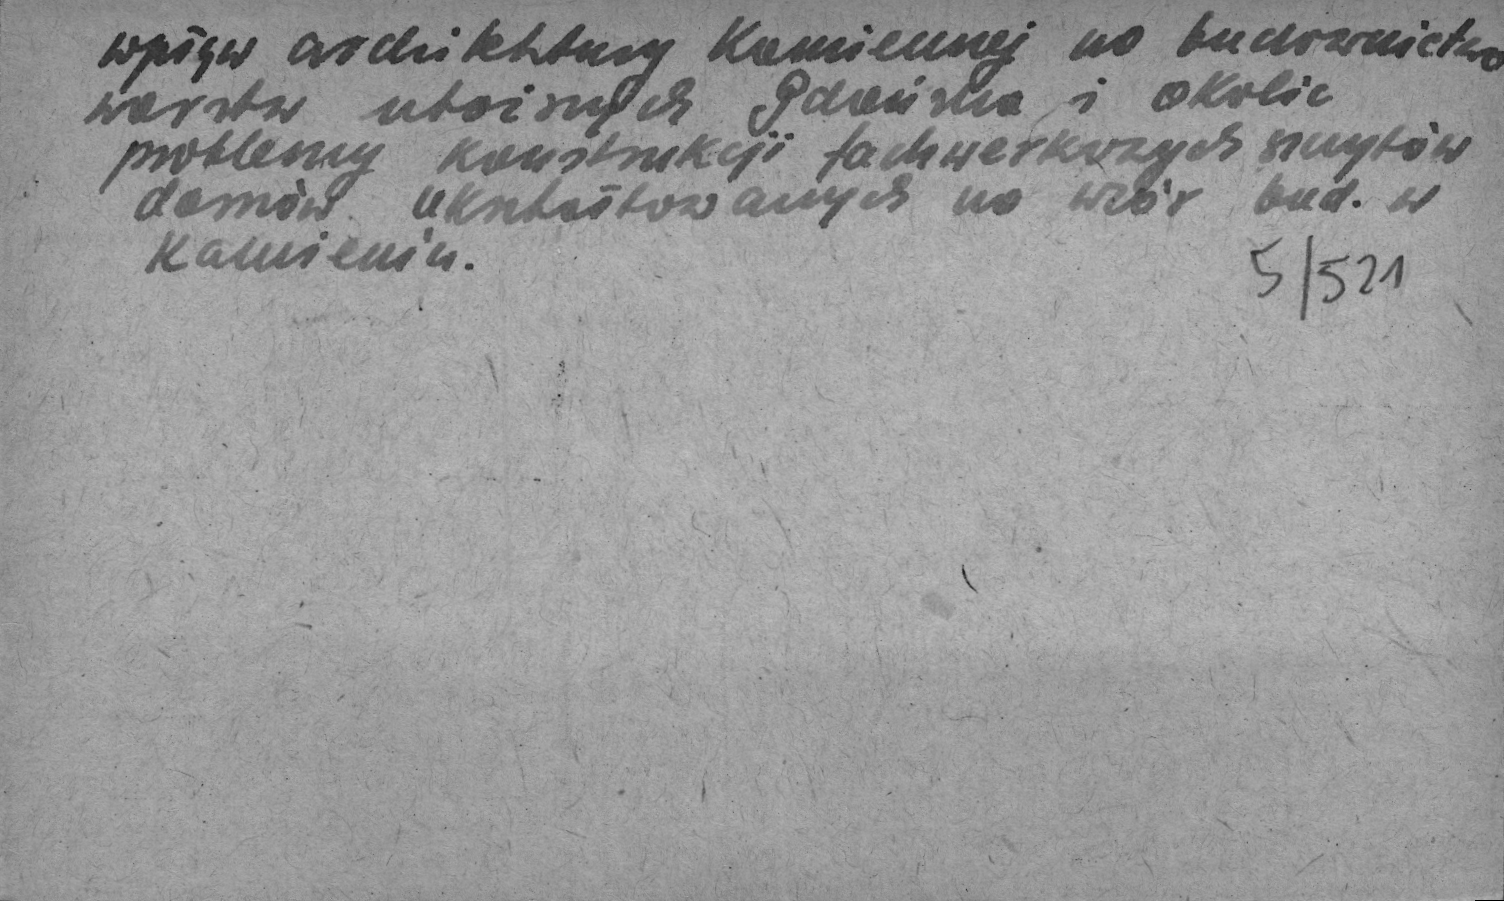 wpływ architektury Kamiennej na budownictwo
warstw uboższych Gdańska i okolic
problemy konstrukcji fachwerkowych szczytów
domów ukształtowanych na wzór bud. w
Kamieniu.
5/521